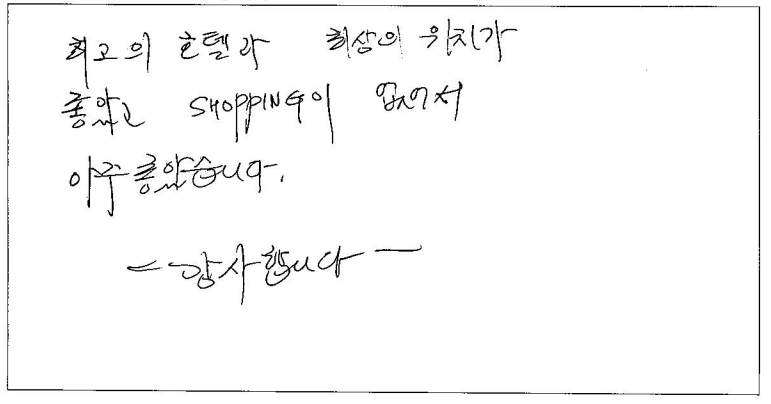 최고의 호텔과 최상의 위치가
좋았고 SHOPPING이 없어서
아주 좋았습니다.
- 감사합니다 -